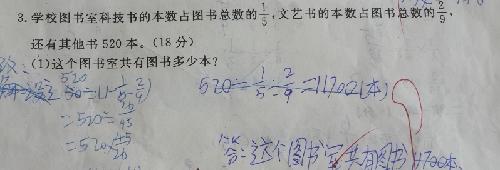 3. 学校图书室科技书的本数占图书总数的1/5,文艺书的本数占图书总数的2/9,
还有其他书520本。(18分)
(1)这个图书室共有图书多少本?
520÷(1-1/5-2/9)
=520÷26/45
=520×45/26
520÷1/5÷2/9=11702(本)
答:这个图书室共有图书 11700本.